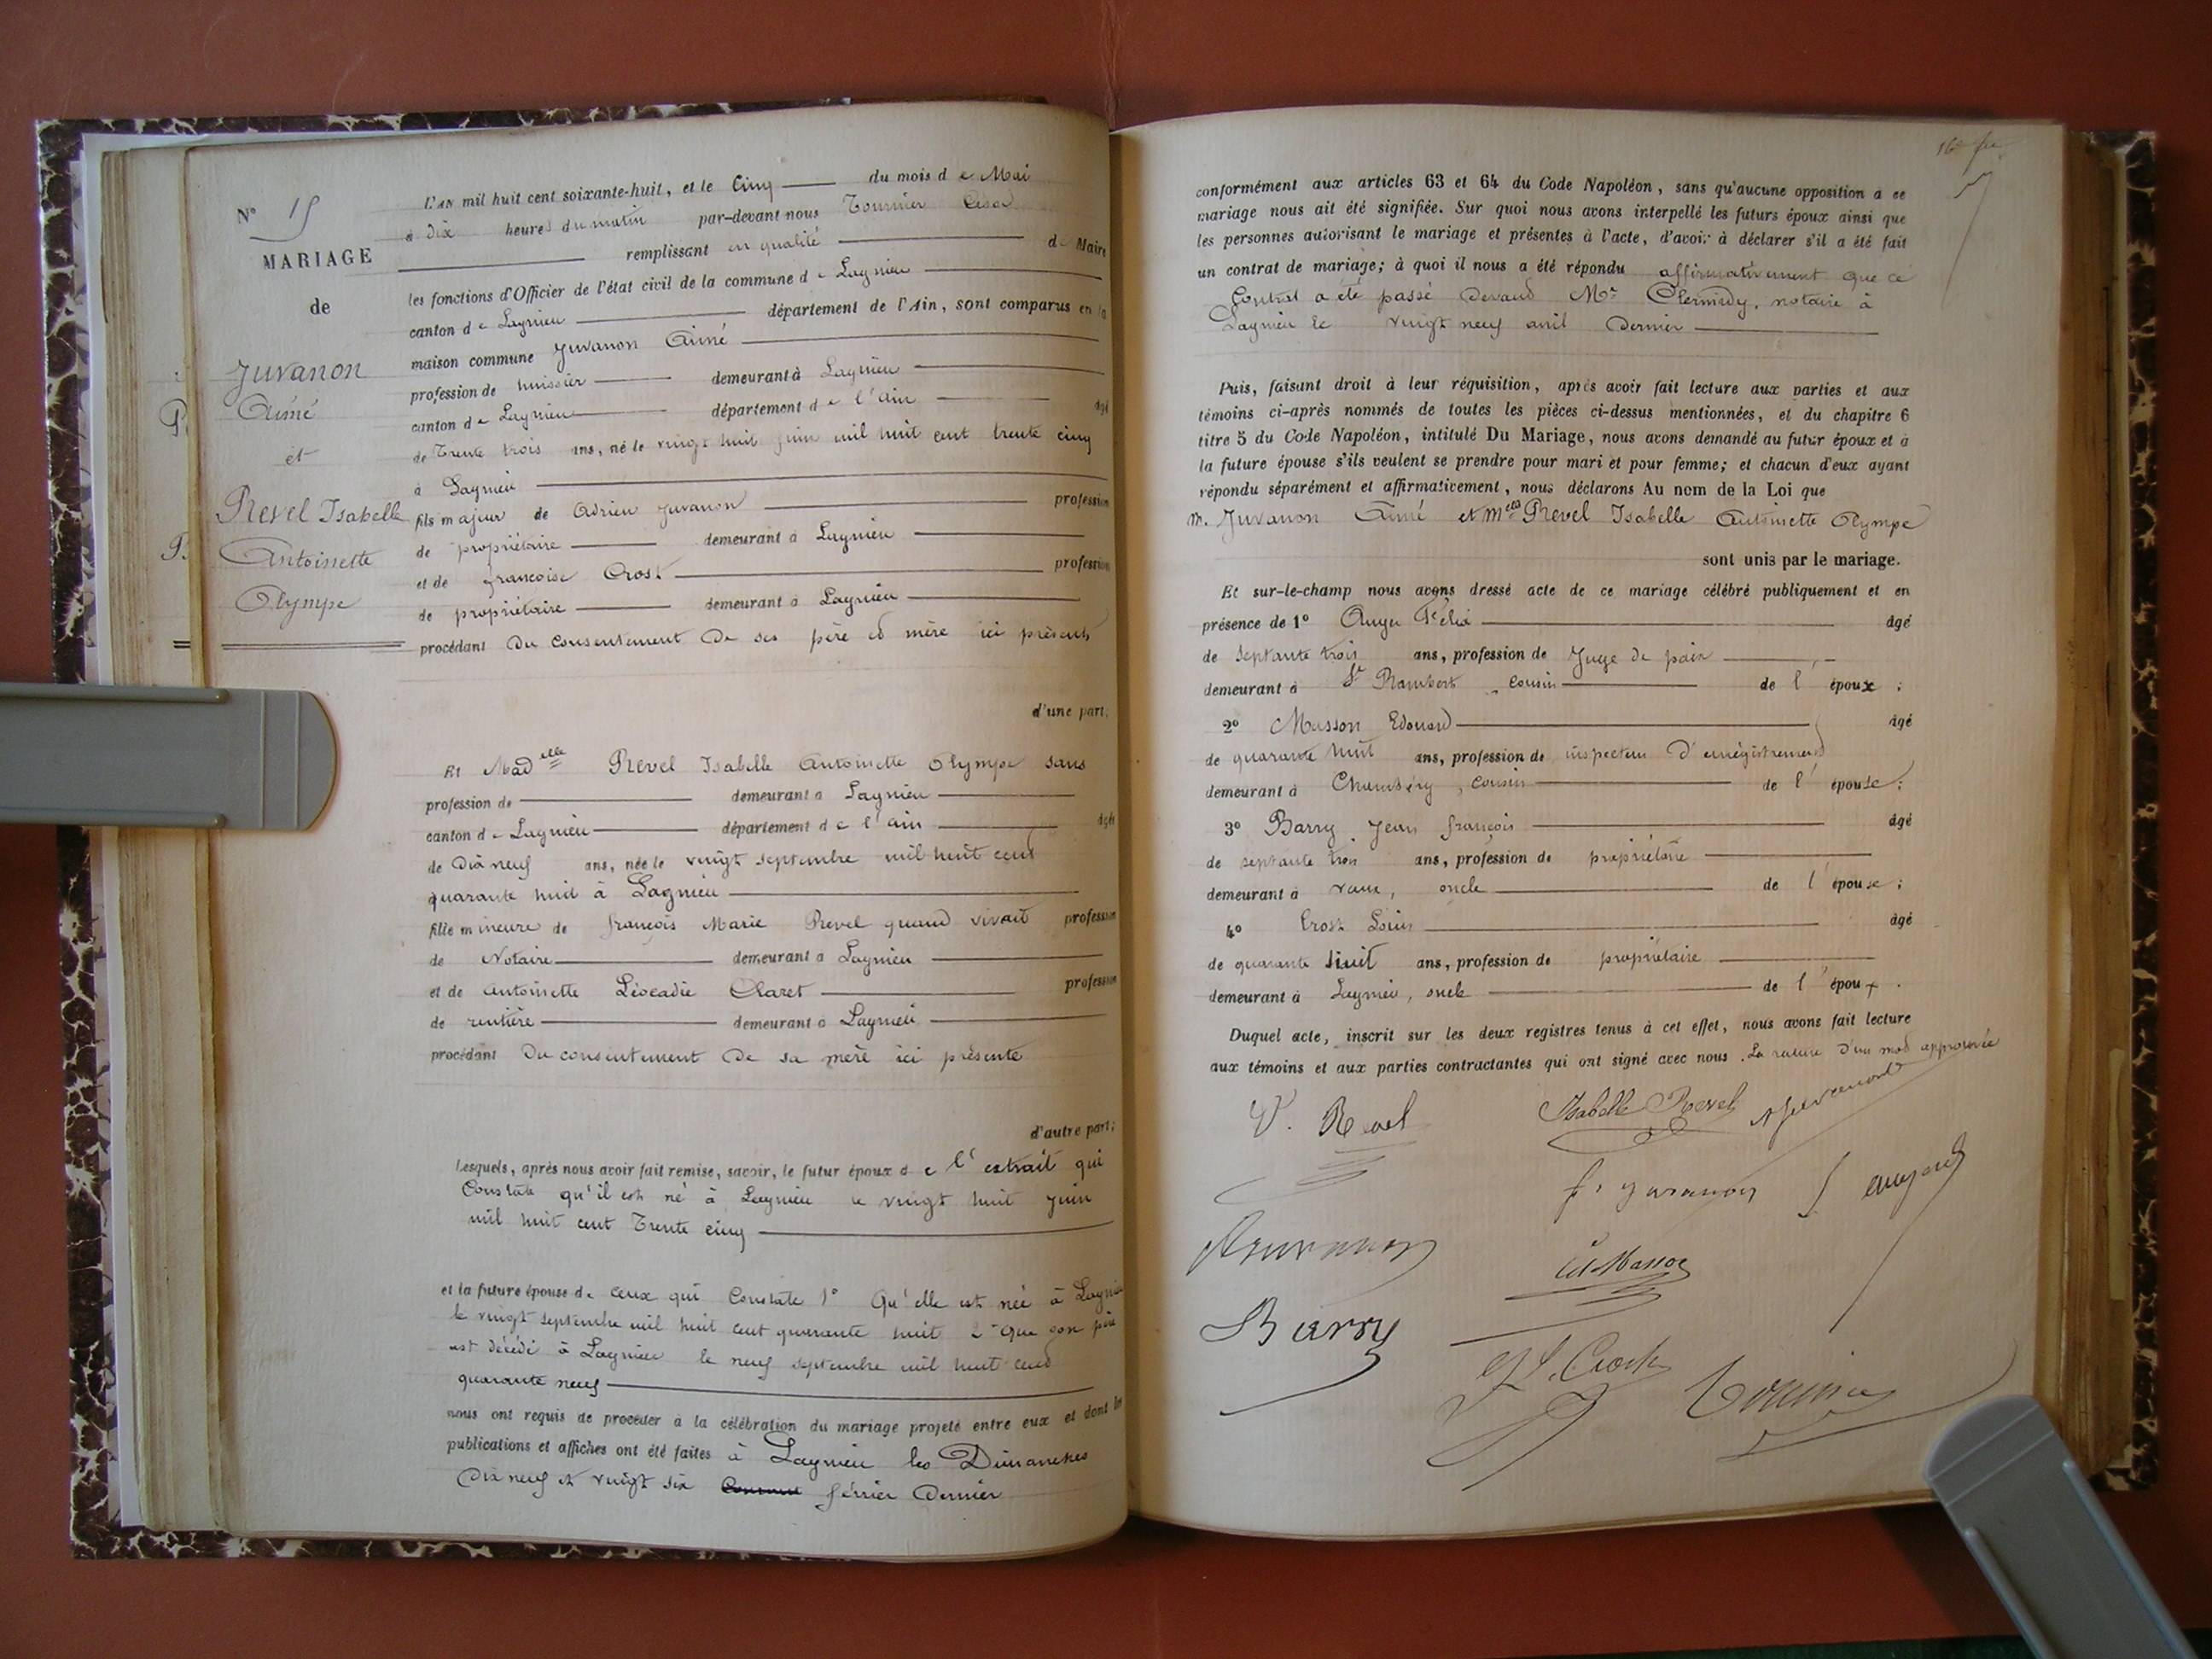 N° 15
MARIAGE
de
Juvanon
Aimé
et
Revel Isabelle
Antoinette
Olympe
L'AN mil huit cent soixante-huit, et le Cinq du mois de Mai
à Dix heures du matin par-devant nous Tournier César
remplissant en qualité de Maire
les fonctions d'Officier de l'état civil de la commune de Lagnieu
canton de Lagnieu département de l'Ain, sont comparus en la
maison commune Juvanon Aimé
profession de huissier demeurant à Lagnieu
canton de Lagnieu département de l'ain âgé
de Trente trois ans, né le vingt huit juin mil huit cent trente cinq
à Lagnieu
fils majeur de Adrien Juvanon profession
de propriétaire demeurant à Lagnieu
et de françoise Crost profession
de propriétaire demeurant à Lagnieu
procédant Du consentement De ses père et mère ici présents
d'une part;
Et Mad elle Revel Isabelle Antoinette Olympe sans
profession de demeurant à Lagnieu
canton de Lagnieu département de l'ain âgée
de Dix neuf ans, née le vingt septembre mil huit cent
quarante huit à Lagnieu
fille mineure de françois Marie Revel quand vivait profession
de Notaire demeurant à Lagnieu
et de antoinette Léocadie Charet profession
de rentière demeurant à Lagnieu
procédant Du consentement De sa mère ici présente
d'autre part;
Lesquels, après nous avoir fait remise, savoir, le futur époux de l'extrait qui
Constate qu'il est né à Lagnieu le vingt huit juin
mil huit cent Trente cinq
et la future épouse de ceux qui Constate 1° Qu'elle est née à Lagnieu
le vingt septembre mil huit cent quarante huit 2° Que son père
est décédé à Lagnieu le neuf septembre mil huit cent
quarante neuf
nous ont requis de procéder à la célébration du mariage projeté entre eux et dont les
publications et affiches ont été faites à Lagnieu les Dimanches
Dix neuf et vingt six février Dernier
conformément aux articles 63 et 64 du Code Napoléon, sans qu'aucune opposition à ce
mariage nous ait été signifiée. Sur quoi nous avons interpellé les futurs époux ainsi que
les personnes autorisant le mariage et présentes à l'acte, d'avoir à déclarer s'il a été fait
un contrat de mariage; à quoi il nous a été répondu affirmativement que ce
Contrat a été passé Devand Me notaire à
Lagnieu le vingt neuf avril Dernier
Puis, faisant droit à leur réquisition, après avoir fait lecture aux parties et aux
témoins ci-après nommés de toutes les pièces ci-dessus mentionnées, et du chapitre 6
titre 5 du Code Napoléon, intitulé Du Mariage, nous avons demandé au futur époux et à
la future épouse s'ils veulent se prendre pour mari et pour femme; et chacun d'eux ayant
répondu séparément et affirmativement, nous déclarons Au nom de la Loi que
M. Juvanon Aimé et Melle Revel Isabelle Antoinette Olympe
sont unis par le mariage.
Et sur-le-champ nous avons dressé acte de ce mariage célébré publiquement et en
présence de 1° Auger Félix âgé
de septante trois ans, profession de Juge de paix
demeurant à St Rambert, cousin de l'époux;
2° Masson Edouard âgé
de quarante huit ans, profession de inspecteur D'enrégistrement
demeurant à Chambéry, cousin de l'épouse;
3° Barry Jean françois âgé
de septante trois ans, profession de propriétaire
demeurant à vaux, oncle de l'épouse;
4° Crost Louis âgé
de quarante huit ans, profession de propriétaire
demeurant à Lagnieu, oncle de l'époux.
Duquel acte, inscrit sur les deux registres tenus à cet effet, nous avons fait lecture
aux témoins et aux parties contractantes qui ont signé avec nous. La rature D'un mot approuvée
V. Revel Isabelle Revel A Juvanon
f. Juvanon
Juvanon Ed Masson
Barry
L. Crost Tournier